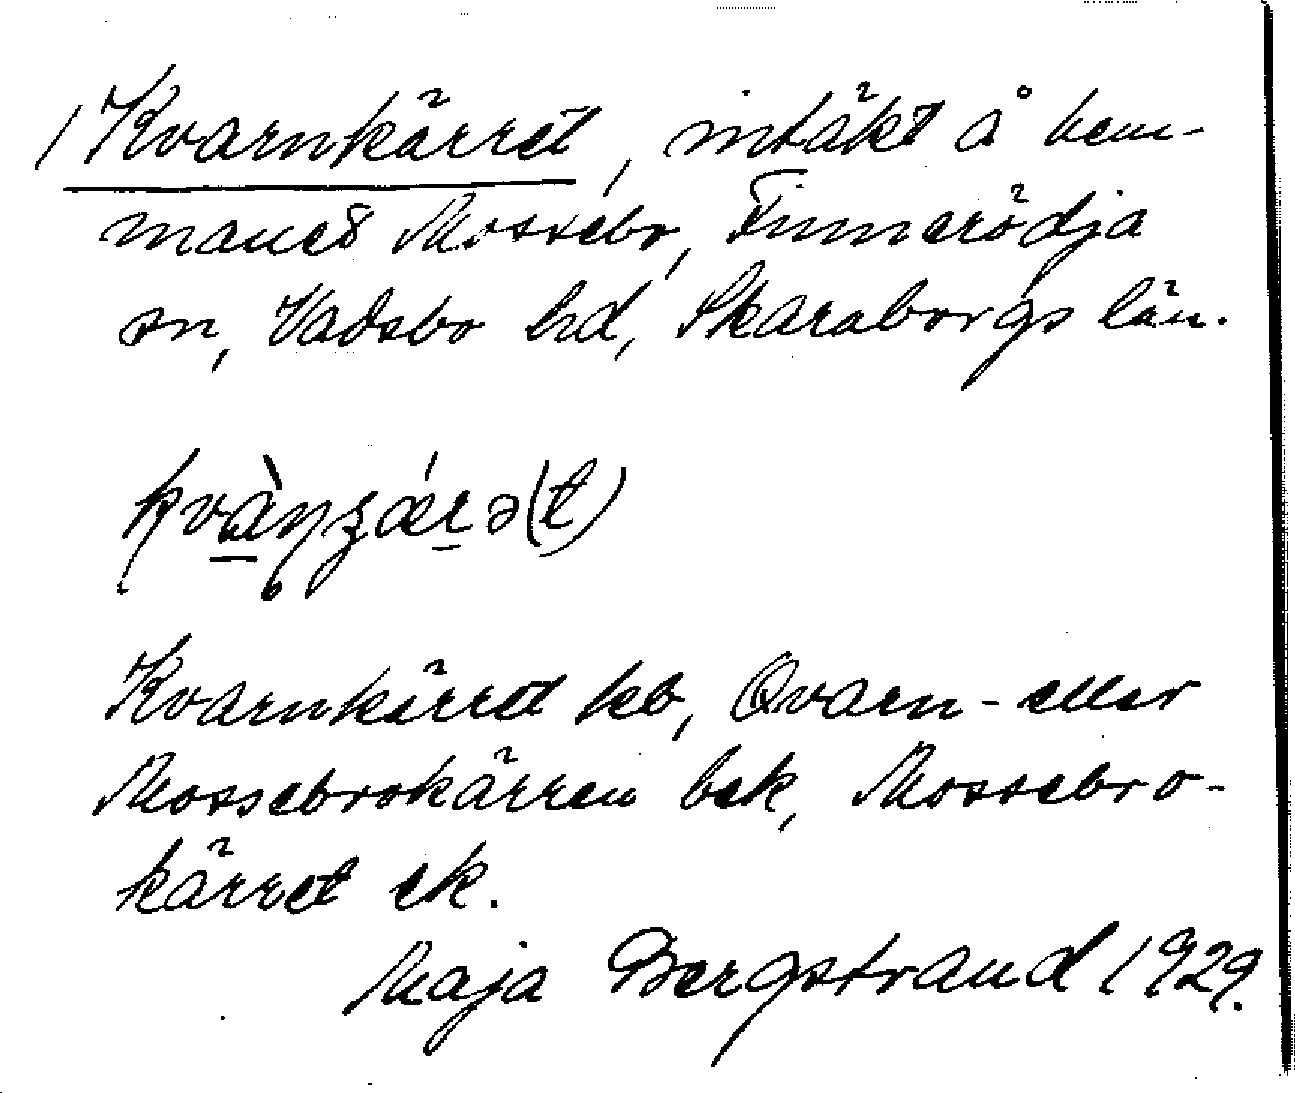 / Kvarnkärret, intäkt å hem-
manet Mossebo, Finnerödja
sn, Vadsbo hd, Skaraborgs län.
kvàṇʒǽrə(t)
Kvarnkärret kb, Qvarn- eller
Mossebrokärren bek, Mossebro-
kärret ek.
Maja Bergstrand 1929.